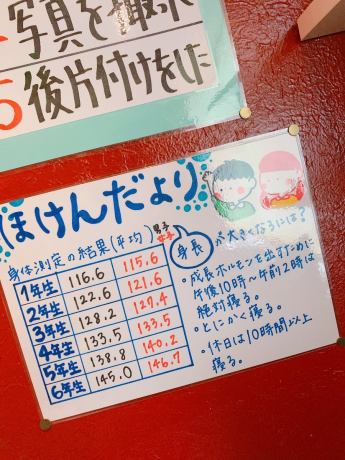 写真を撮った
5 後片付けをした
ほけんだより
身体測定の結果(平均) 男子 女子
1年生 116.6 115.6
2年生 122.6 121.6
3年生 128.2 127.4
4年生 133.5 133.5
5年生 138.8 140.2
6年生 145.0 146.7
身長が大きくなるには?
・成長ホルモンを出すために
午後10時~午前2時は
絶対寝る。
・とにかく寝る。
・休日は10時間以上
寝る。